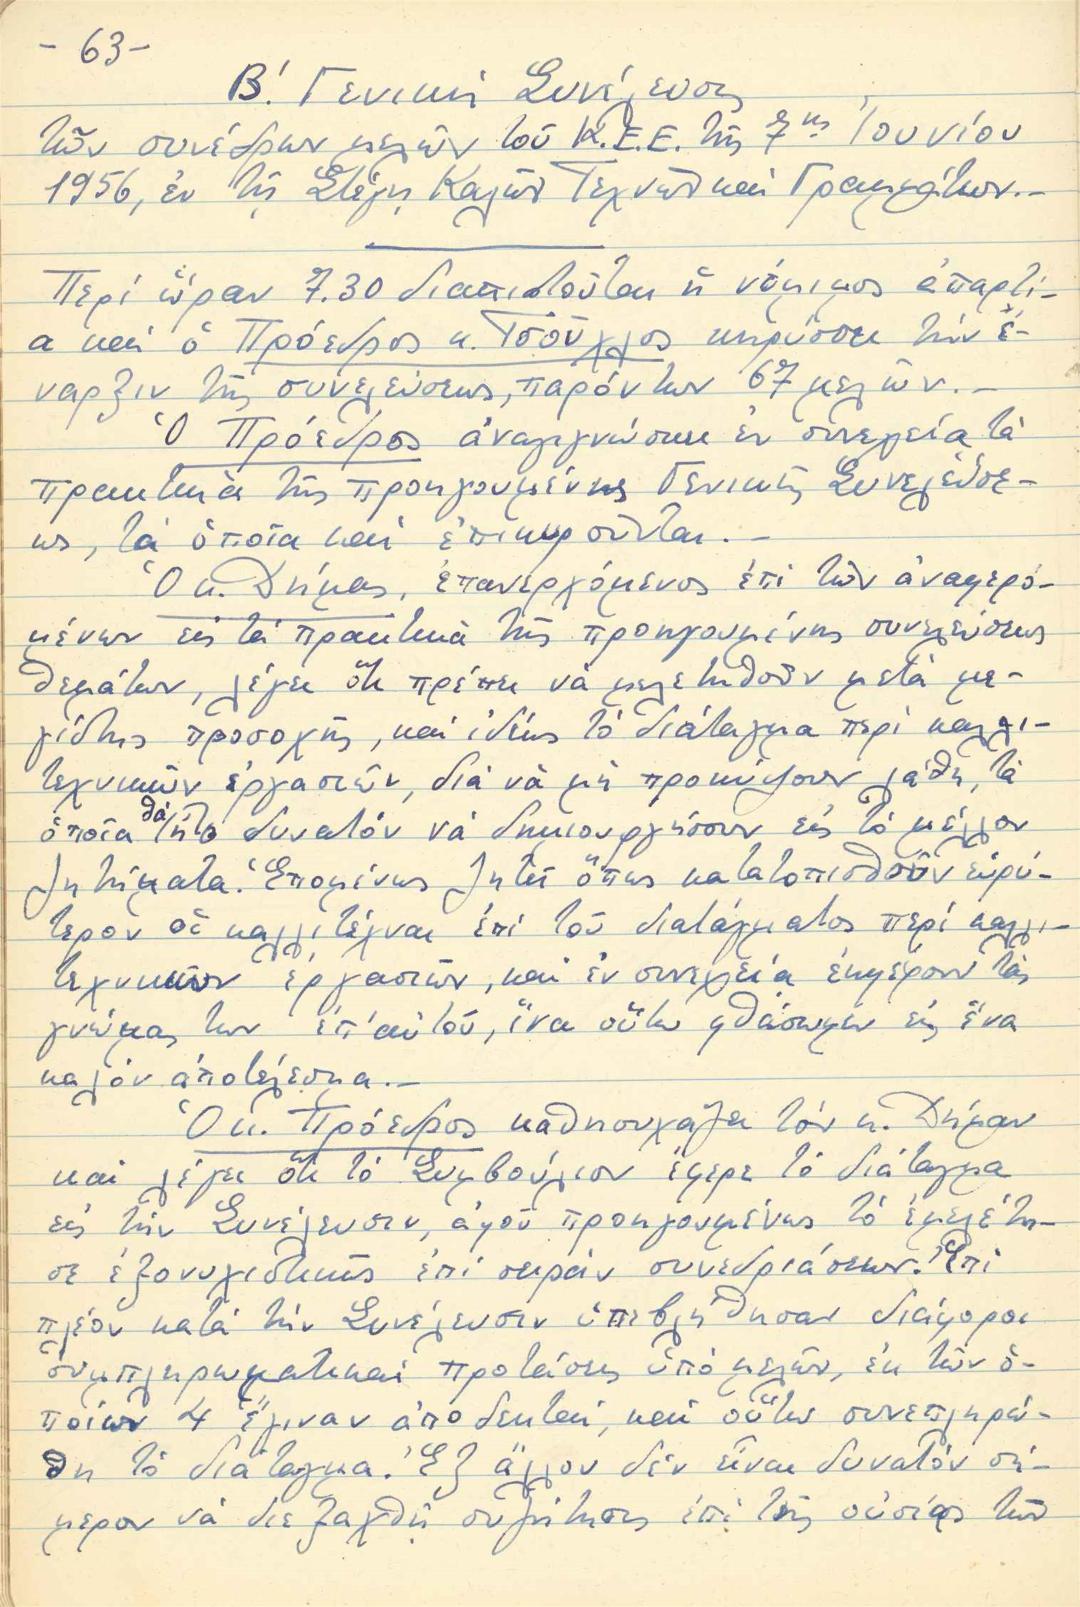 - 63 -
Β′. Γενική Συνέλευσις
τῶν συνέδρων μελῶν τοῦ Κ.Ε.Ε. τῆς 7ης Ἰουνίου
1956, ἐν τῇ Στέγῃ Καλῶν Τεχνῶν καί Γραμμάτων.-
Περί ὥραν 7.30 διαπιστοῦται ἡ νόμιμος ἀπαρτί-
α καί ὁ Πρόεδρος κ. Τσοῦχλος κηρύσσει τήν ἔ-
ναρξιν τῆς συνελεύσεως, παρόντων 67 μελῶν.-
Ὁ Πρόεδρος ἀναγιγνώσκει ἐν συνεχείᾳ τά
πρακτικά τῆς προηγουμένης Γενικῆς Συνελεύσε-
ως, τά ὁποῖα καί ἐπικυροῦνται.-
Ὁ κ. Δήμας, ἐπανερχόμενος ἐπί τῶν ἀναφερο-
μένων εἰς τά πρακτικά τῆς προηγουμένης συνελεύσεως
θεμάτων, λέγει ὅτι πρέπει νά μελετηθοῦν μετά με-
γίστης προσοχῆς, καί ἰδίως τό διάταγμα περί καλλι-
τεχνικῶν ἐργασιῶν, διά νά μή προκύψουν λάθη, τά
ὁποῖα θά ἦτο δυνατόν νά δημιουργήσουν εἰς τό μέλλον
ζητήματα. Ἑπομένως ζητεῖ ὅπως κατατοπισθοῦν εὐρύ-
τερον οἱ καλλιτέχναι ἐπί τοῦ διατάγματος περί καλλι-
τεχνικῶν ἐργασιῶν, καί ἐν συνεχείᾳ ἐκφέρουν τάς
γνώμας των ἐπ' αὐτοῦ, ἵνα οὕτω φθάσωμεν εἰς ἕνα
καλόν ἀποτέλεσμα.-
Ὁ κ. Πρόεδρος καθησυχάζει τόν κ. Δήμαν
καί λέγει ὅτι τό Συμβούλιον ἔφερε τό διάταγμα
εἰς τήν Συνέλευσιν, ἀφοῦ προηγουμένως τό ἐμελέτη-
σε ἐξονυχιστικῶς ἐπί σειράν συνεδριάσεων. Ἐπί
πλέον κατά τήν Συνέλευσιν ὑπεβλήθησαν διάφοροι
συμπληρωματικαί προτάσεις ὑπό μελῶν, ἐκ τῶν ὁ-
ποίων 4 ἔγιναν ἀποδεκταί, καί οὕτω συνεπληρώ-
θη τό διάταγμα. Ἐξ ἄλλου δέν εἶναι δυνατόν σή-
μερον νά διεξαχθῇ συζήτησις ἐπί τῆς οὐσίας τῶν